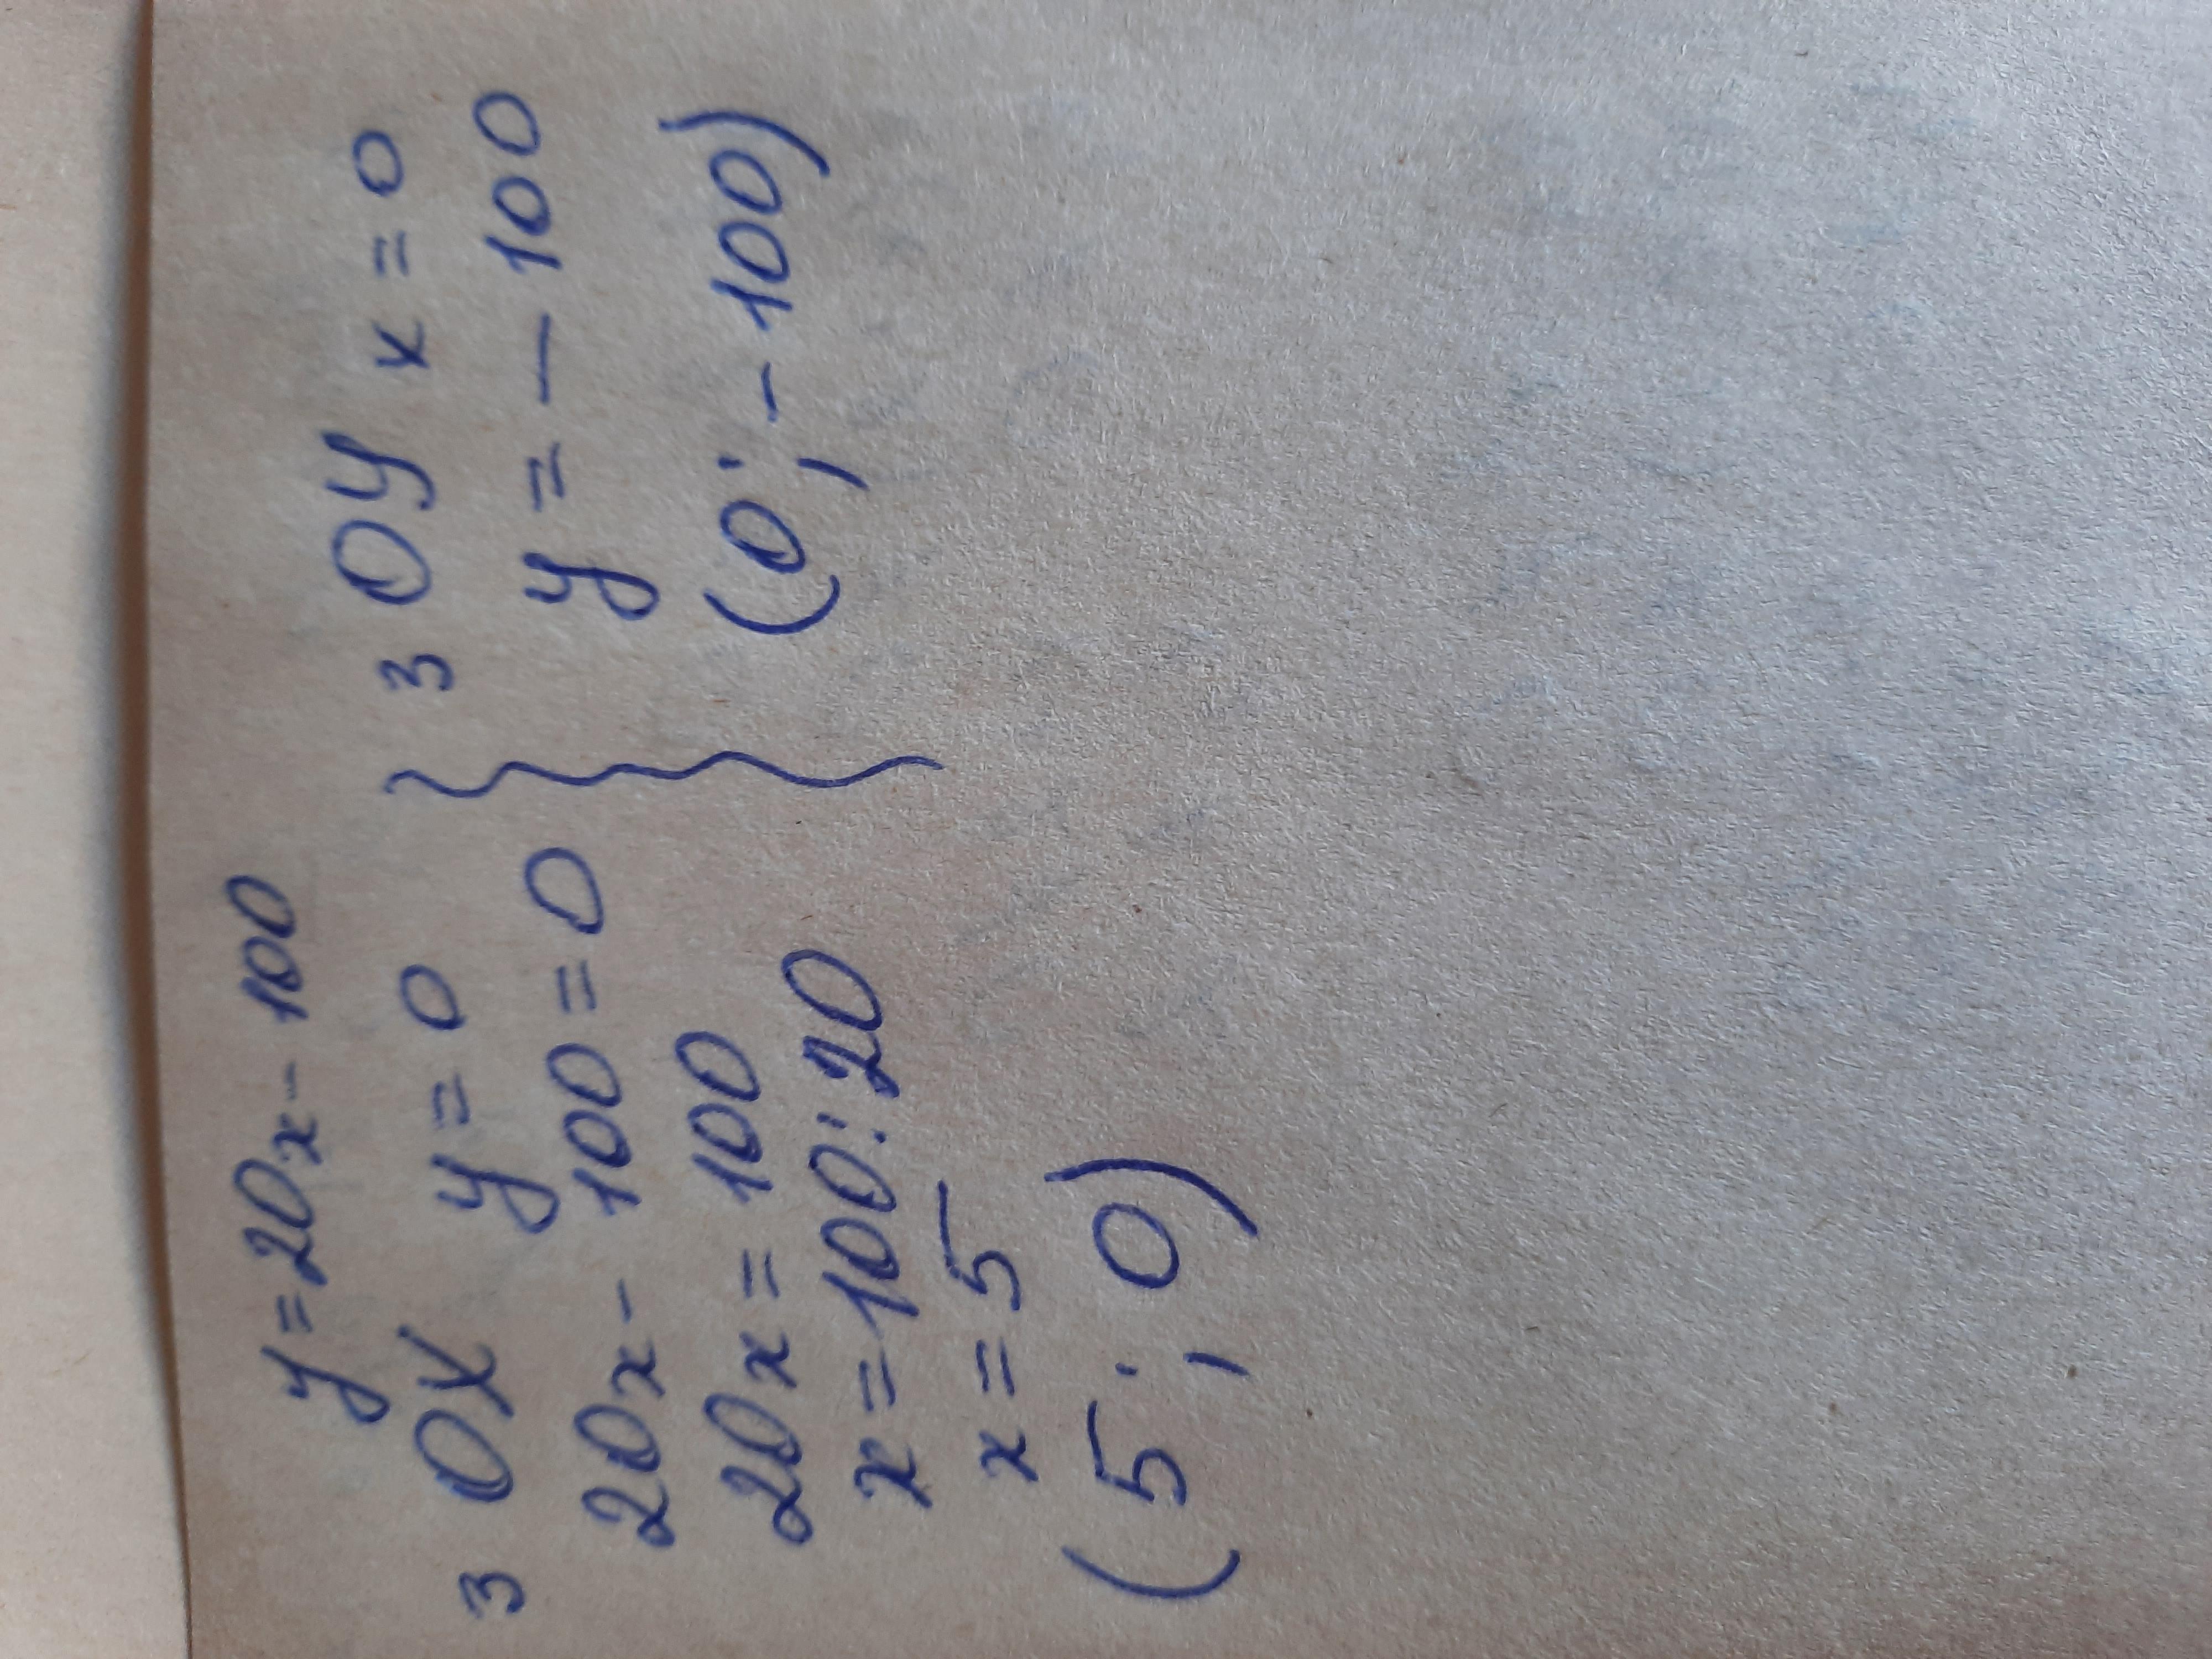 y = 20x - 100
з OX y = 0
20x - 100 = 0
20x = 100
x = 100 : 20
x = 5
(5 ; 0)
з OY x = 0
y = - 100
(0 ; - 100)